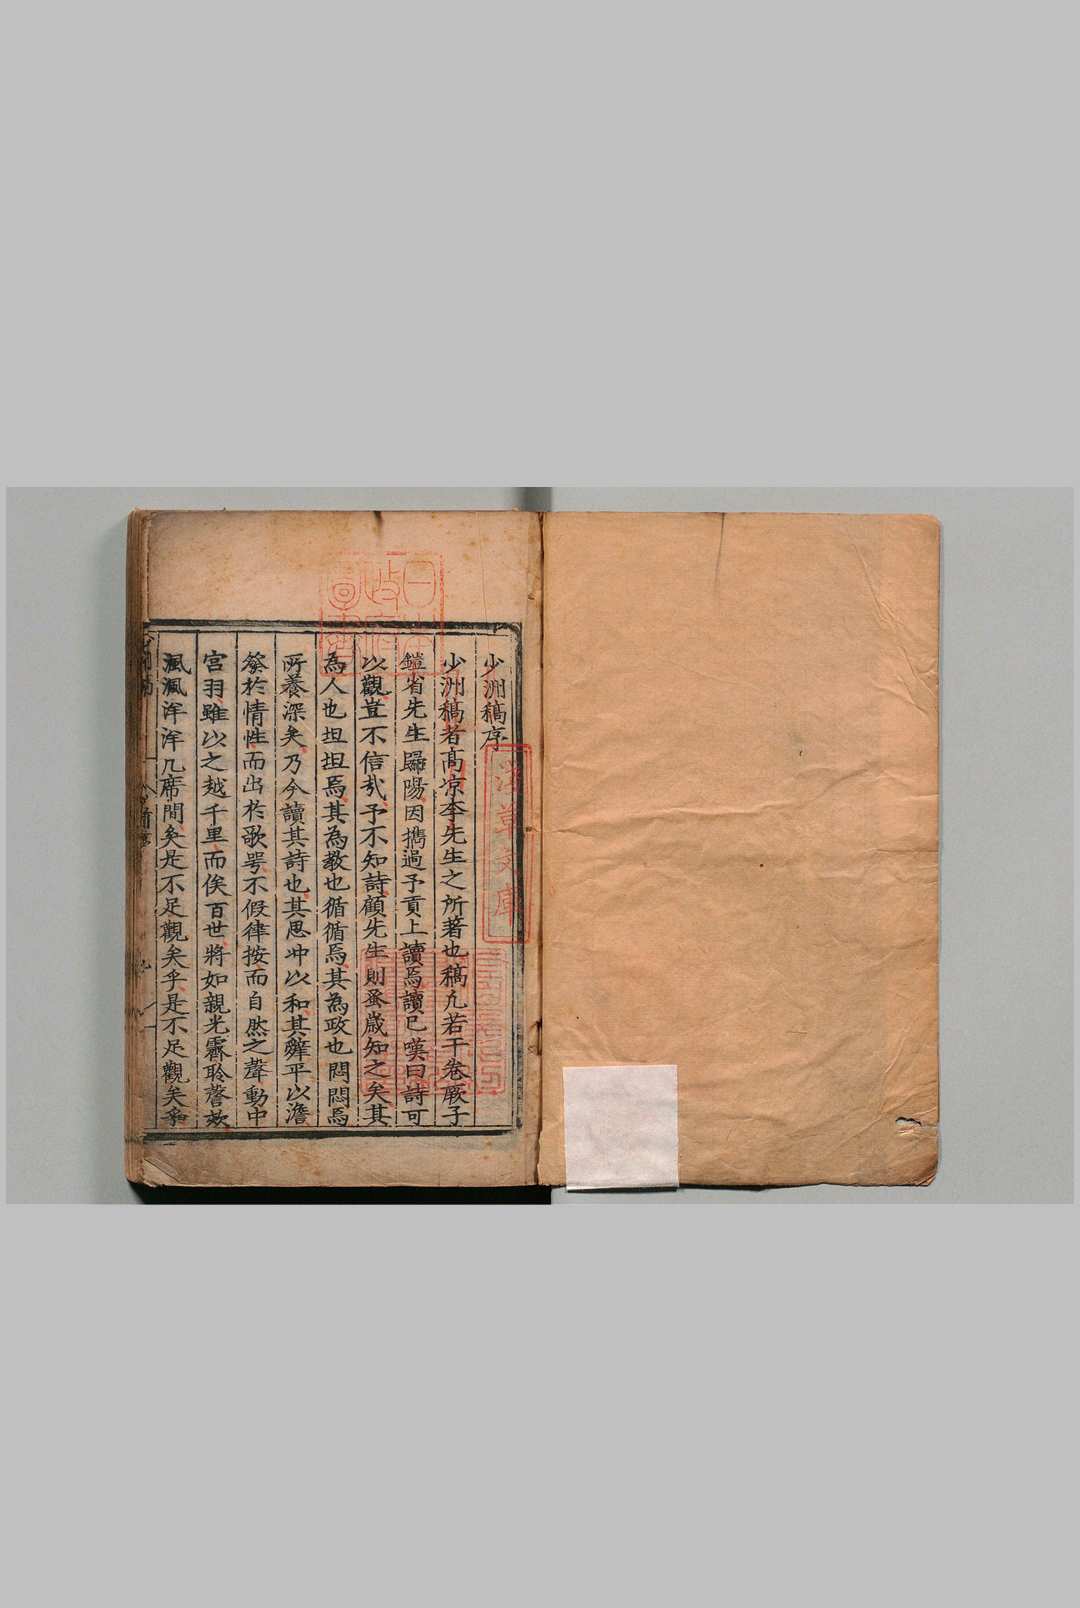 少洲稿序
少洲稿者高凉李先生之所著也稿凡若干卷厥子
鎧省先生歸陽因攜過予貢上讀焉讀已嘆曰詩可
以觀豈不信㢤予不知詩顧先生則蚤嵗知之矣其
為人也坦坦焉其為教也循循焉其為政也悶悶焉
所養深矣乃今讀其詩也其思冲以和其辭平以澹
發於情性而出於歌咢不假律按而自然之聲動中
宮羽雖以之越千里而俟百世將如親光霽聆謦欬
渢渢洋洋几席間矣是不足觀矣乎是不足觀矣乎
日本
政府
圖書
淺草文庫